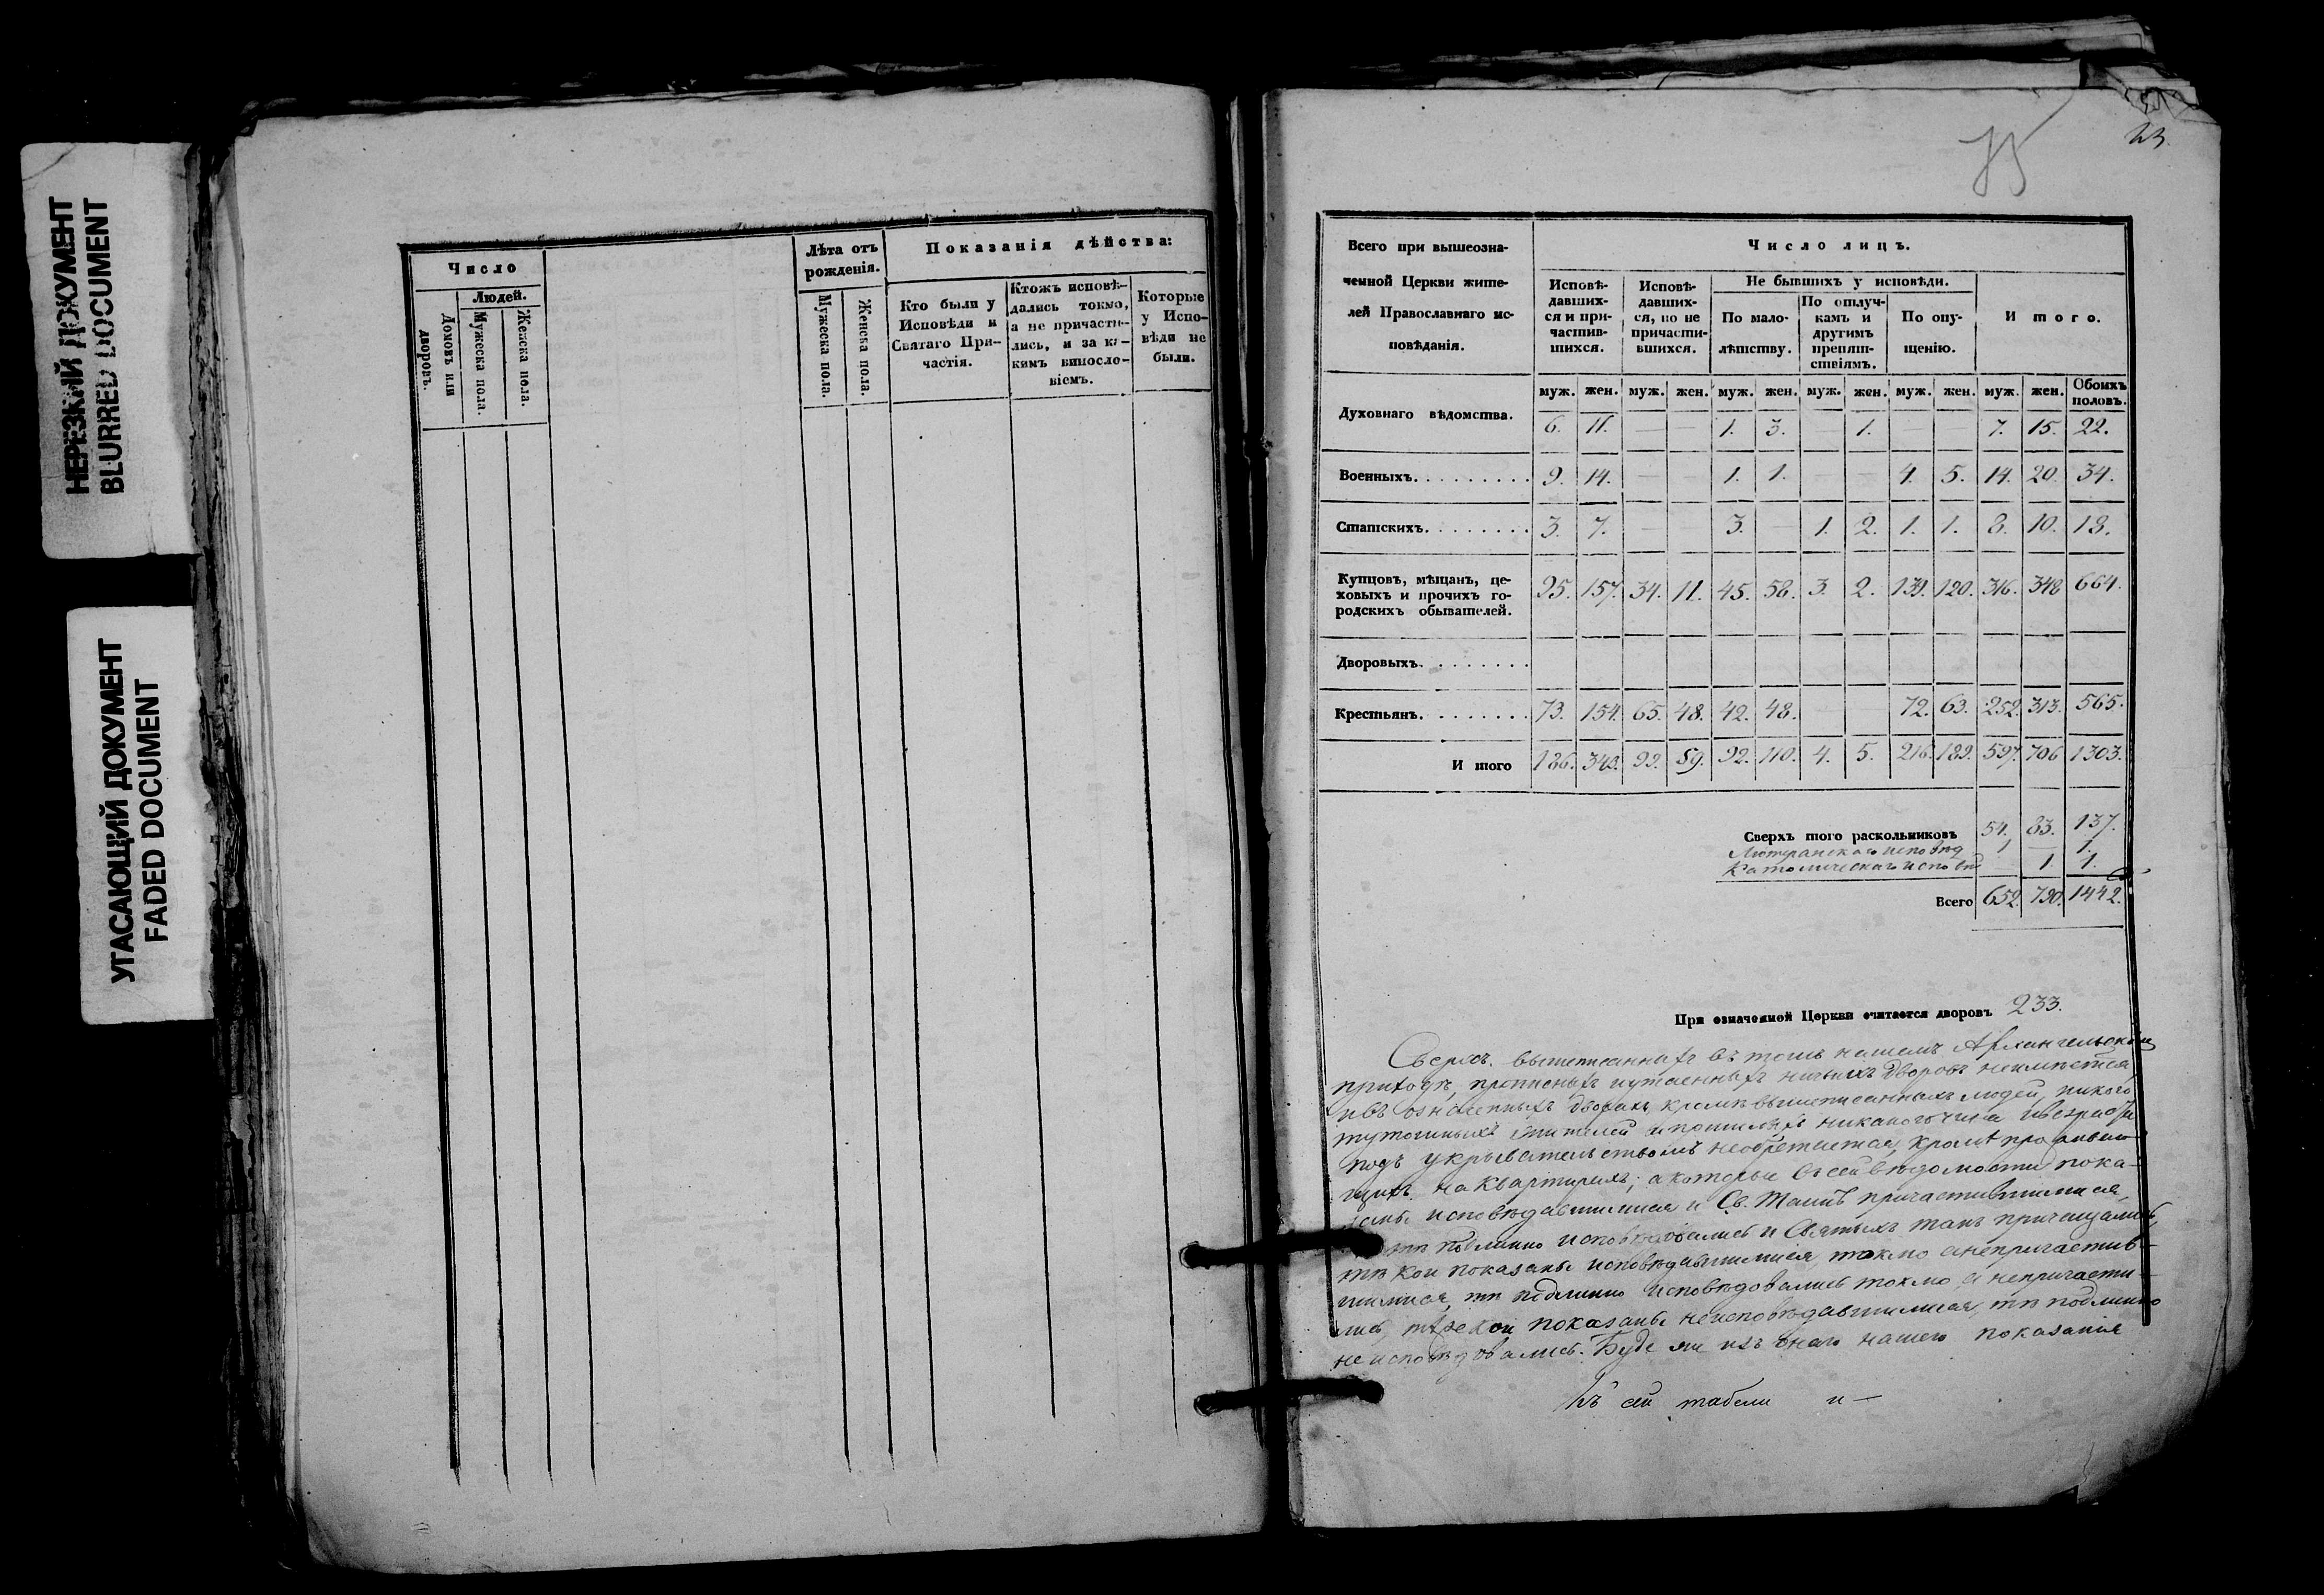 НЕРЕЗКИЙ ДОКУМЕНТ
BLURRED DOCUMENT
УГАСАЮЩИЙ ДОКУМЕНТ
FADED DOCUMENT
Число
Людей.
Домовъ или дворовъ.
Мужеска пола.
Женска пола.
Лѣта отъ рожденія.
Мужеска пола.
Женска пола.
Показанія дѣйства:
Кто были у
Исповѣди и
Святаго При-
частія.
Ктожъ исповѣ-
дались токмо,
а не причасти-
лись, и за ка-
кимъ виносло-
віемъ.
Которые
у Испо-
вѣди не
были.
75
23
Всего при вышеозна-
ченной Церкви жите-
лей Православнаго ис-
повѣданія.
Число лицъ.
Исповѣ-
давших-
ся и при-
частив-
шихся.
Исповѣ-
давших-
ся, но не
причасти-
вшихся.
Не бывшихъ у исповѣди.
По мало-
лѣтству.
По отлуч-
камъ и
другимъ
препят-
ствіямъ.
По опу-
щенію.
Итого.
муж. жен. муж. жен. муж. жен. муж. жен. муж. жен. муж. жен. Обоихъ половъ.
Духовнаго вѣдомства. 6. 11. — — 1. 3. — 1. — — 7. 15. 22.
Военныхъ. 9. 14. — — 1. 1. — — 4. 5. 14. 20. 34.
Статскихъ. 3. 7. — — 3. 1. 2. 1. 1. 8. 10. 18.
Купцовъ, мѣщан, це-
ховыхъ и прочихъ го-
родскихъ обывателей. 95. 157. 34. 11. 45. 58. 3. 2. 139. 120. 316. 348 664.
Дворовыхъ.
Крестьянъ. 73. 154. 65. 48. 42. 48. — — 72. 63. 252. 313. 565.
Итого 186. 343. 99. 59. 92. 110. 4. 5. 216. 189. 597. 706 1303.
Сверхъ того раскольниковъ 54. 83. 137.
Лютеранскаго исповѣд 1 — 1.
Католическаго исповѣд — 1. 1.
Всего 652. 790. 1442.
При означенной Церкви считается дворовъ 233.
Сверхъ вышеписанныхъ въ томъ нашемъ Архангельскомъ
приходѣ, прописныхъ и утаенныхъ ничьихъ дворовъ неимѣется,
и въ означенныхъ дворахъ, кромѣ вышеписанныхъ людей, никого
тутошныхъ жителей и пошлыхъ никакого чина и возраста
подъ укрывательствомъ необрѣтается, кромѣ
на квартирахъ; а которые въ сей вѣдомости пока-
заны исповѣдавшимися и Св. Таинъ причастившимися,
тѣ подлинно исповѣдовались и Святыхъ таинъ причащались,
тѣ кои показаны исповѣдавшимися токмо а непричастив-
шимися, тѣ подлинно исповѣдовались токмо, а непричасти-
лись, кои показаны неисповѣдавшимися, тѣ подлинно
не исповѣдовались. Буде же изъ онаго нашего показанія
Къ сей табели и —